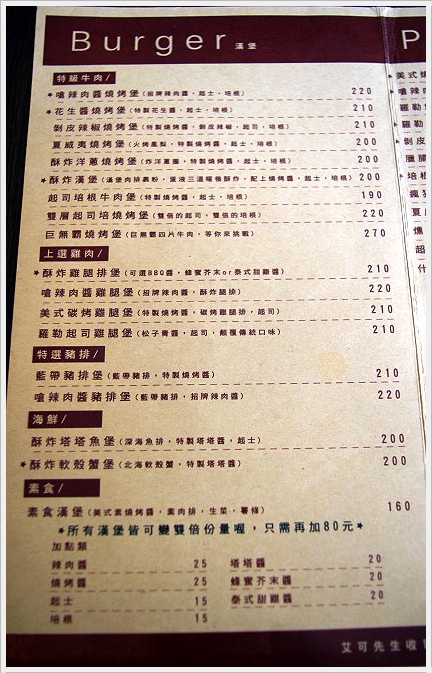 Burger 漢堡
P
特級牛肉/
★嗆辣肉醬燒烤堡(招牌辣肉醬,起士,培根) 220
★花生醬燒烤堡(特製花生醬,起士,培根) 210
剝皮辣椒燒烤堡(特製燒烤醬,剝皮辣椒,起司,培根) 210
夏威夷燒烤堡(火烤鳳梨,特製燒烤醬,起士,培根) 200
酥炸洋蔥燒烤堡(炸洋蔥圈,特製燒烤醬,起士,培根) 200
★酥炸漢堡(漢堡肉排裹粉,蛋液三溫暖後酥炸,配上燒烤醬,起士,培根) 200
起司培根牛肉堡(特製燒烤醬,起士,培根) 190
雙層起司培燒烤堡(雙倍的起司,雙倍的培根) 220
巨無霸燒烤堡(巨無霸四片牛肉,等你來挑戰) 270
上選雞肉/
★酥炸雞腿排堡(可選BBQ醬,蜂蜜芥末or泰式甜雞醬) 210
嗆辣肉醬雞腿堡(招牌辣肉醬,酥炸腿排) 220
美式碳烤雞腿堡(特製燒烤醬,碳烤雞腿排,起司) 210
羅勒起司雞腿堡(松子青醬,起司,顛覆傳統口味) 210
特選豬排/
藍帶豬排堡(藍帶豬排,特製燒烤醬) 210
嗆辣肉醬豬排堡(藍帶豬排,招牌辣肉醬) 220
海鮮/
酥炸塔塔魚堡(深海魚排,特製塔塔醬,起士) 200
★酥炸軟殼蟹堡(北海軟殼蟹,特製塔塔醬) 200
素食/
素食漢堡(美式素燒烤醬,素肉排,生菜,薯條) 160
★所有漢堡皆可變雙倍份量喔,只需再加80元★
加點類
辣肉醬 25 塔塔醬 20
燒烤醬 25 蜂蜜芥末醬 20
起士 15 泰式甜雞醬 20
培根 15
艾可先生收